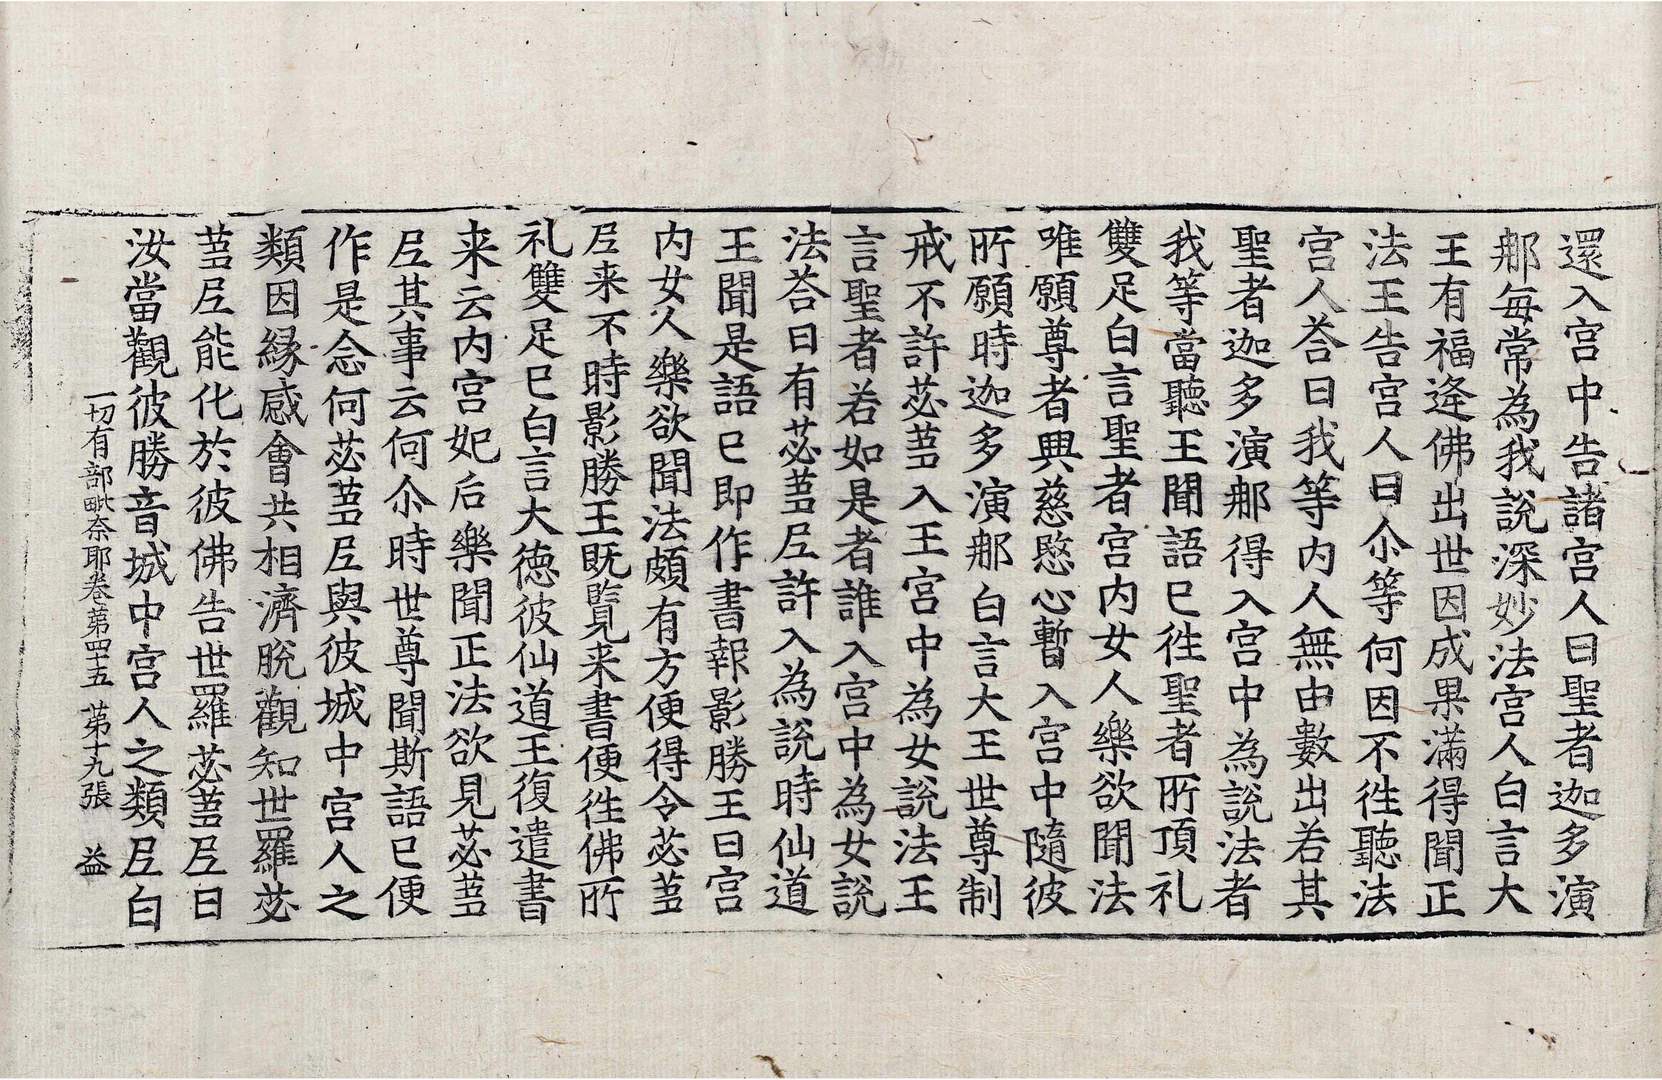 還入宫中告諸宫人曰聖者迦多演
𨚗每常為我說深妙法宫人白言大
王有福逢佛出世因成果滿得聞正
法王告宫人曰尒等何因不徃聽法
宫人荅曰我等内人無由數出若其
聖者迦多演𨚗得入宫中為說法者
我等當聽王聞語已徃聖者所頂礼
雙足白言聖者宫内女人樂欲聞法
唯願尊者興慈愍心暫入宫中隨彼
所願時迦多演𨚗白言大王世尊制
戒不許苾蒭入王宫中為女說法王
言聖者若如是者誰入宫中為女說
法荅曰有苾蒭尼許入為說時仙道
王聞是語已即作書報影勝王曰宫
内女人樂欲聞法頗有方便得令苾蒭
尼来不時影勝王既覽来書便徃佛所
礼雙足已白言大德彼仙道王復遣書
来云内宫妃后樂聞正法欲見苾蒭
尼其事云何尒時世尊聞斯語已便
作是念何苾蒭尼與彼城中宫人之
類因縁感會共相濟脫觀知世羅苾
蒭尼能化於彼佛告世羅苾蒭尼曰
汝當觀彼勝音城中宫人之類尼白
一切有部毗奈耶卷第四十五　第十九張　益